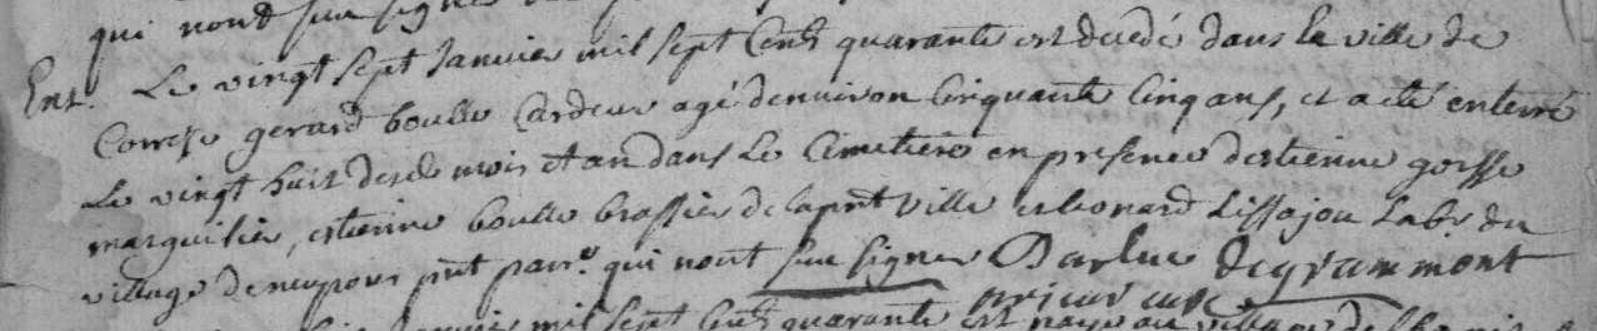 qui nont sçu signer
Ent. Le vingt sept Janvier mil sept Cens quarante est decedé dans la ville de
Correse gerard boulle Cardeur agé denviron Cinquante Cinq ans, et a eté enterré
Le vingt huit desd mois et an dans Le Cimetiere en presence destienne gorsse
marguilier, estienne boulle brassier de la pnt ville et leonard Lissajou Labr du
village de pnt parr.e qui nont sçu signer Darluc degrammont
prieur curé
Janvier mil sept Cens quarante est au village de